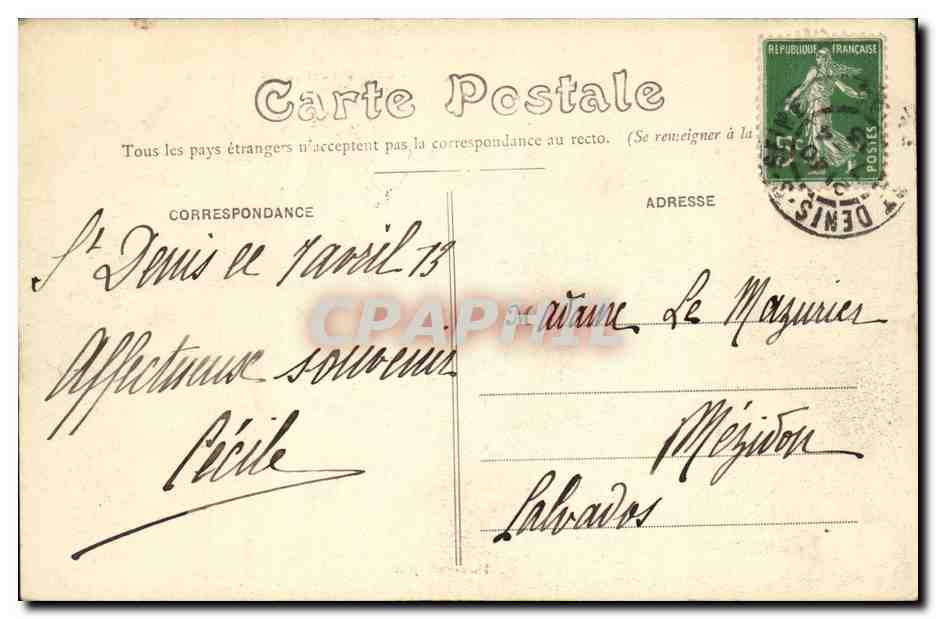 Carte Postale
Tous les pays étrangers n'acceptent pas la correspondance au recto. (Se renseigner à la
RÉPUBLIQUE FRANÇAISE
POSTES
DENIS
CORRESPONDANCE
ADRESSE
St Denis le 7 avril 13
Affectueux souvenir
Cécile
Madame Le Mazurier
Mézidon
Calvados
CPAPHIL